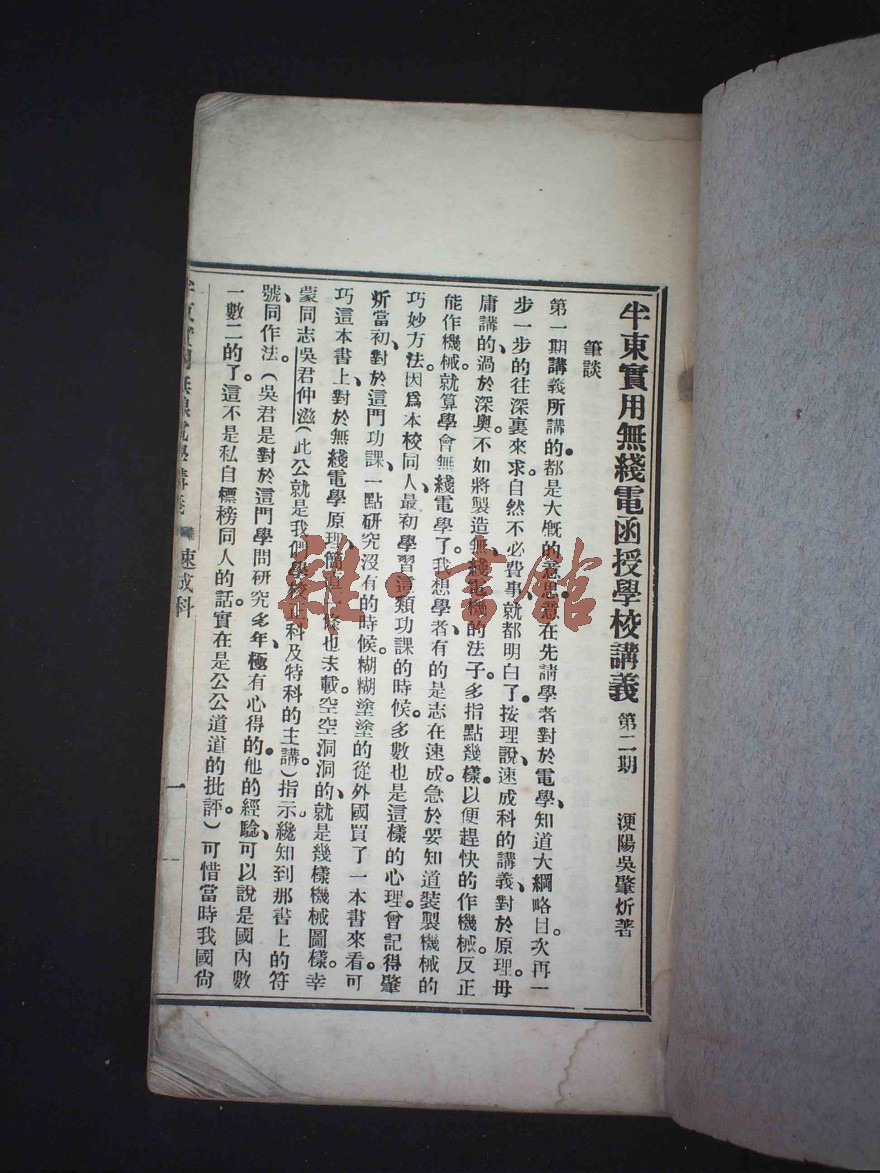 半東實用無綫電函授學校講義 第二期 浭陽吳肇炘著
筆談
第一期講義所講的、都是大慨的意思、意在先請學者對於電學、知道大綱略目、次再一
步一步的往深裏來求、自然不必費事、就都明白了。按理說、速成科的講義、對於原理、毋
庸講的過於深奧。不如將製造無綫電機的法子、多指點幾樣、以便趕快的作機械。反正
能作機械、就算學會無綫電學了。我想學者有的是志在速成、急於要知道裝製機械的
巧妙方法。因爲本校同人、最初學習這類功課的時候、多數也是這樣的心理。曾記得肇
炘當初、對於這門功課、一點研究沒有的時候、糊糊塗塗的從外國買了一本書來看、可
巧這本書上、對於無綫電學原理、簡直一條也未載、空空洞洞的、就是幾樣機械圖樣。幸
蒙同志吳君仲滋(此公就是我們學校正科及特科的主講。)指示、纔知到那書上的符
號、同作法。(吳君是對於這門學問研究多年、極有心得的。他的經驗、可以說是國內數
一數二的了。這不是私自標榜同人的話、實在是公公道道的批評。)可惜當時我國尙
速成科
一
雜·書館